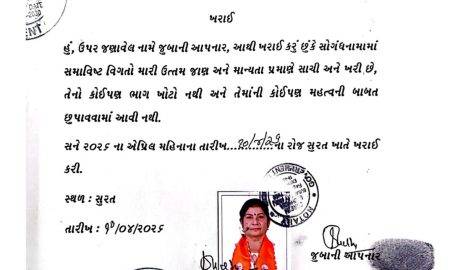 ખરાઈ
હું, ઉપર જણાવેલ નામે જુબાની આપનાર, આથી ખરાઈ કરું છુંકે સોગંધનામામાં
સમાવિષ્ટ વિગતો મારી ઉત્તમ જાણ અને માન્યતા પ્રમાણે સાચી અને ખરી છે,
તેનો કોઈપણ ભાગ ખોટો નથી અને તેમાંની કોઈપણ મહત્વની બાબત
છુપાવવામાં આવી નથી.
સને ૨૦૨૬ ના એપ્રિલ મહિનાના તારીખ...૧૦/૪/૨૬ના રોજ સુરત ખાતે ખરાઈ
કરી.
સ્થળ : સુરત
તારીખ : ૧૦/૦૪/૨૦૨૬
જુબાની આપનાર